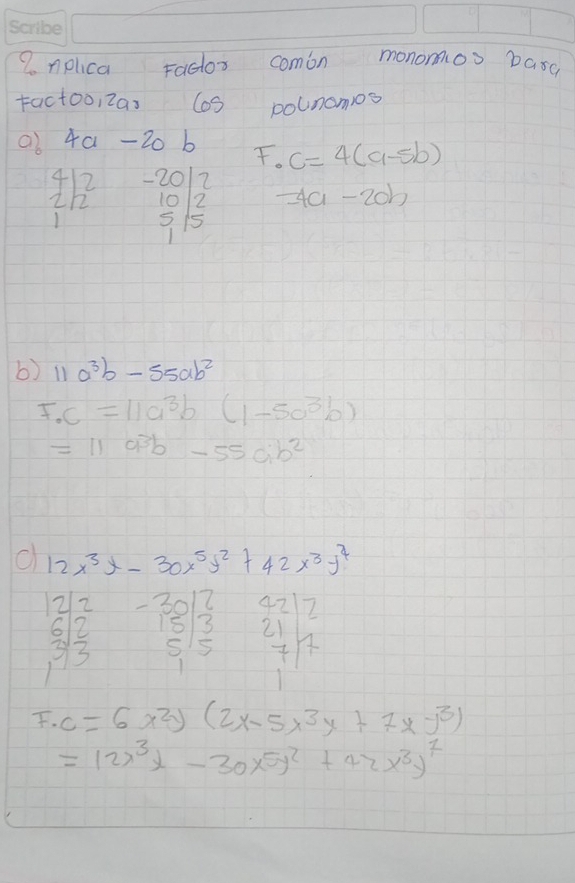 Scribe
2. Aplica Factor común monomios para
Factorizar los polinomios
a) 4a - 20 b F.C = 4(a-5b)
4|2 -20|2 = 4a - 20b
2|2 10|2
1 5|5
1
b) 11 a³b - 55ab²
F.C = 11a³b (1-5a³b)
= 11 a³b - 55 ab²
c) 12x³y - 30x⁵y² + 42x³y⁷
12|2 -30|2 42|2
6|2 15|3 21|
3|3 5|5 7|7
1 1 1
F.C = 6x²y (2x-5x³y + 7xy³)
= 12x³y - 30x⁵y² + 42x³y⁷